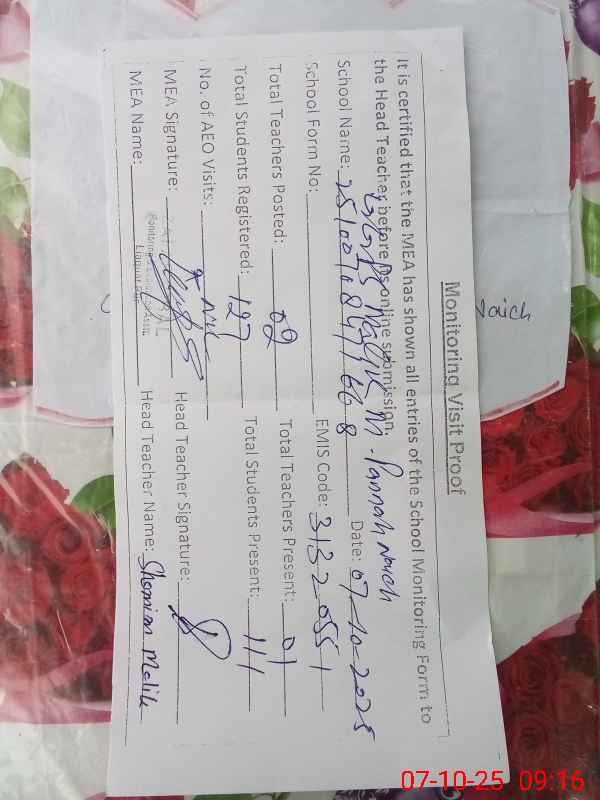 Monitoring Visit Proof
It is certified that the MEA has shown all entries of the School Monitoring Form to
the Head Teacher before its online submission.
School Name: GGPS M. Pannah Naich Date: 07-10-2025
25100108417668
School Form No: EMIS Code: 31320551
Total Teachers Posted: 02 Total Teachers Present: 01
Total Students Registered: 127 Total Students Present: 111
No. of AEO Visits: Nil
MEA Signature: Head Teacher Signature:
MEA Name: Head Teacher Name: Malik
Naich
07-10-25 09:16